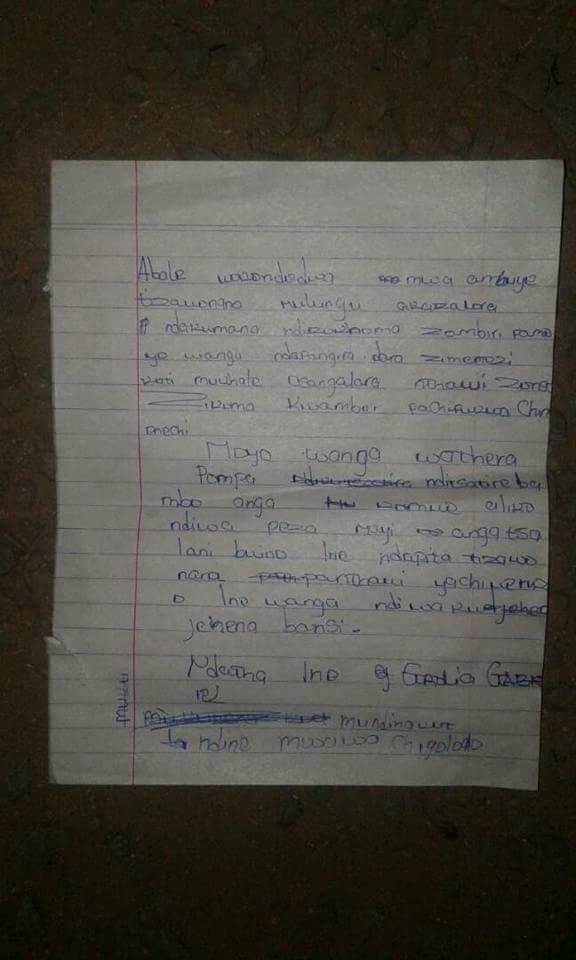 Abale wasondedwa mwa ambuye
tizawonana Mulungu akazalora
ndakumana ndizikhoma zambiri pamo
yo wanga ndapangira dara zimenezi
koti mukhale osangalara nthawi zonse
Zikoma kwambiri pachifukwa Chim
enechi
Moyo wanga wathera
Pompa ndikasore ba
mbo anga komwe aliko
ndiwa peza Mayi anga tsa
lani bwino Ine ndapita tizawo
nana panthawi yachiweruz
o Ine wanga ndiwa
jehena basi.
Nderna Ine
mundinawe
ta ndine mwawa Chigololo